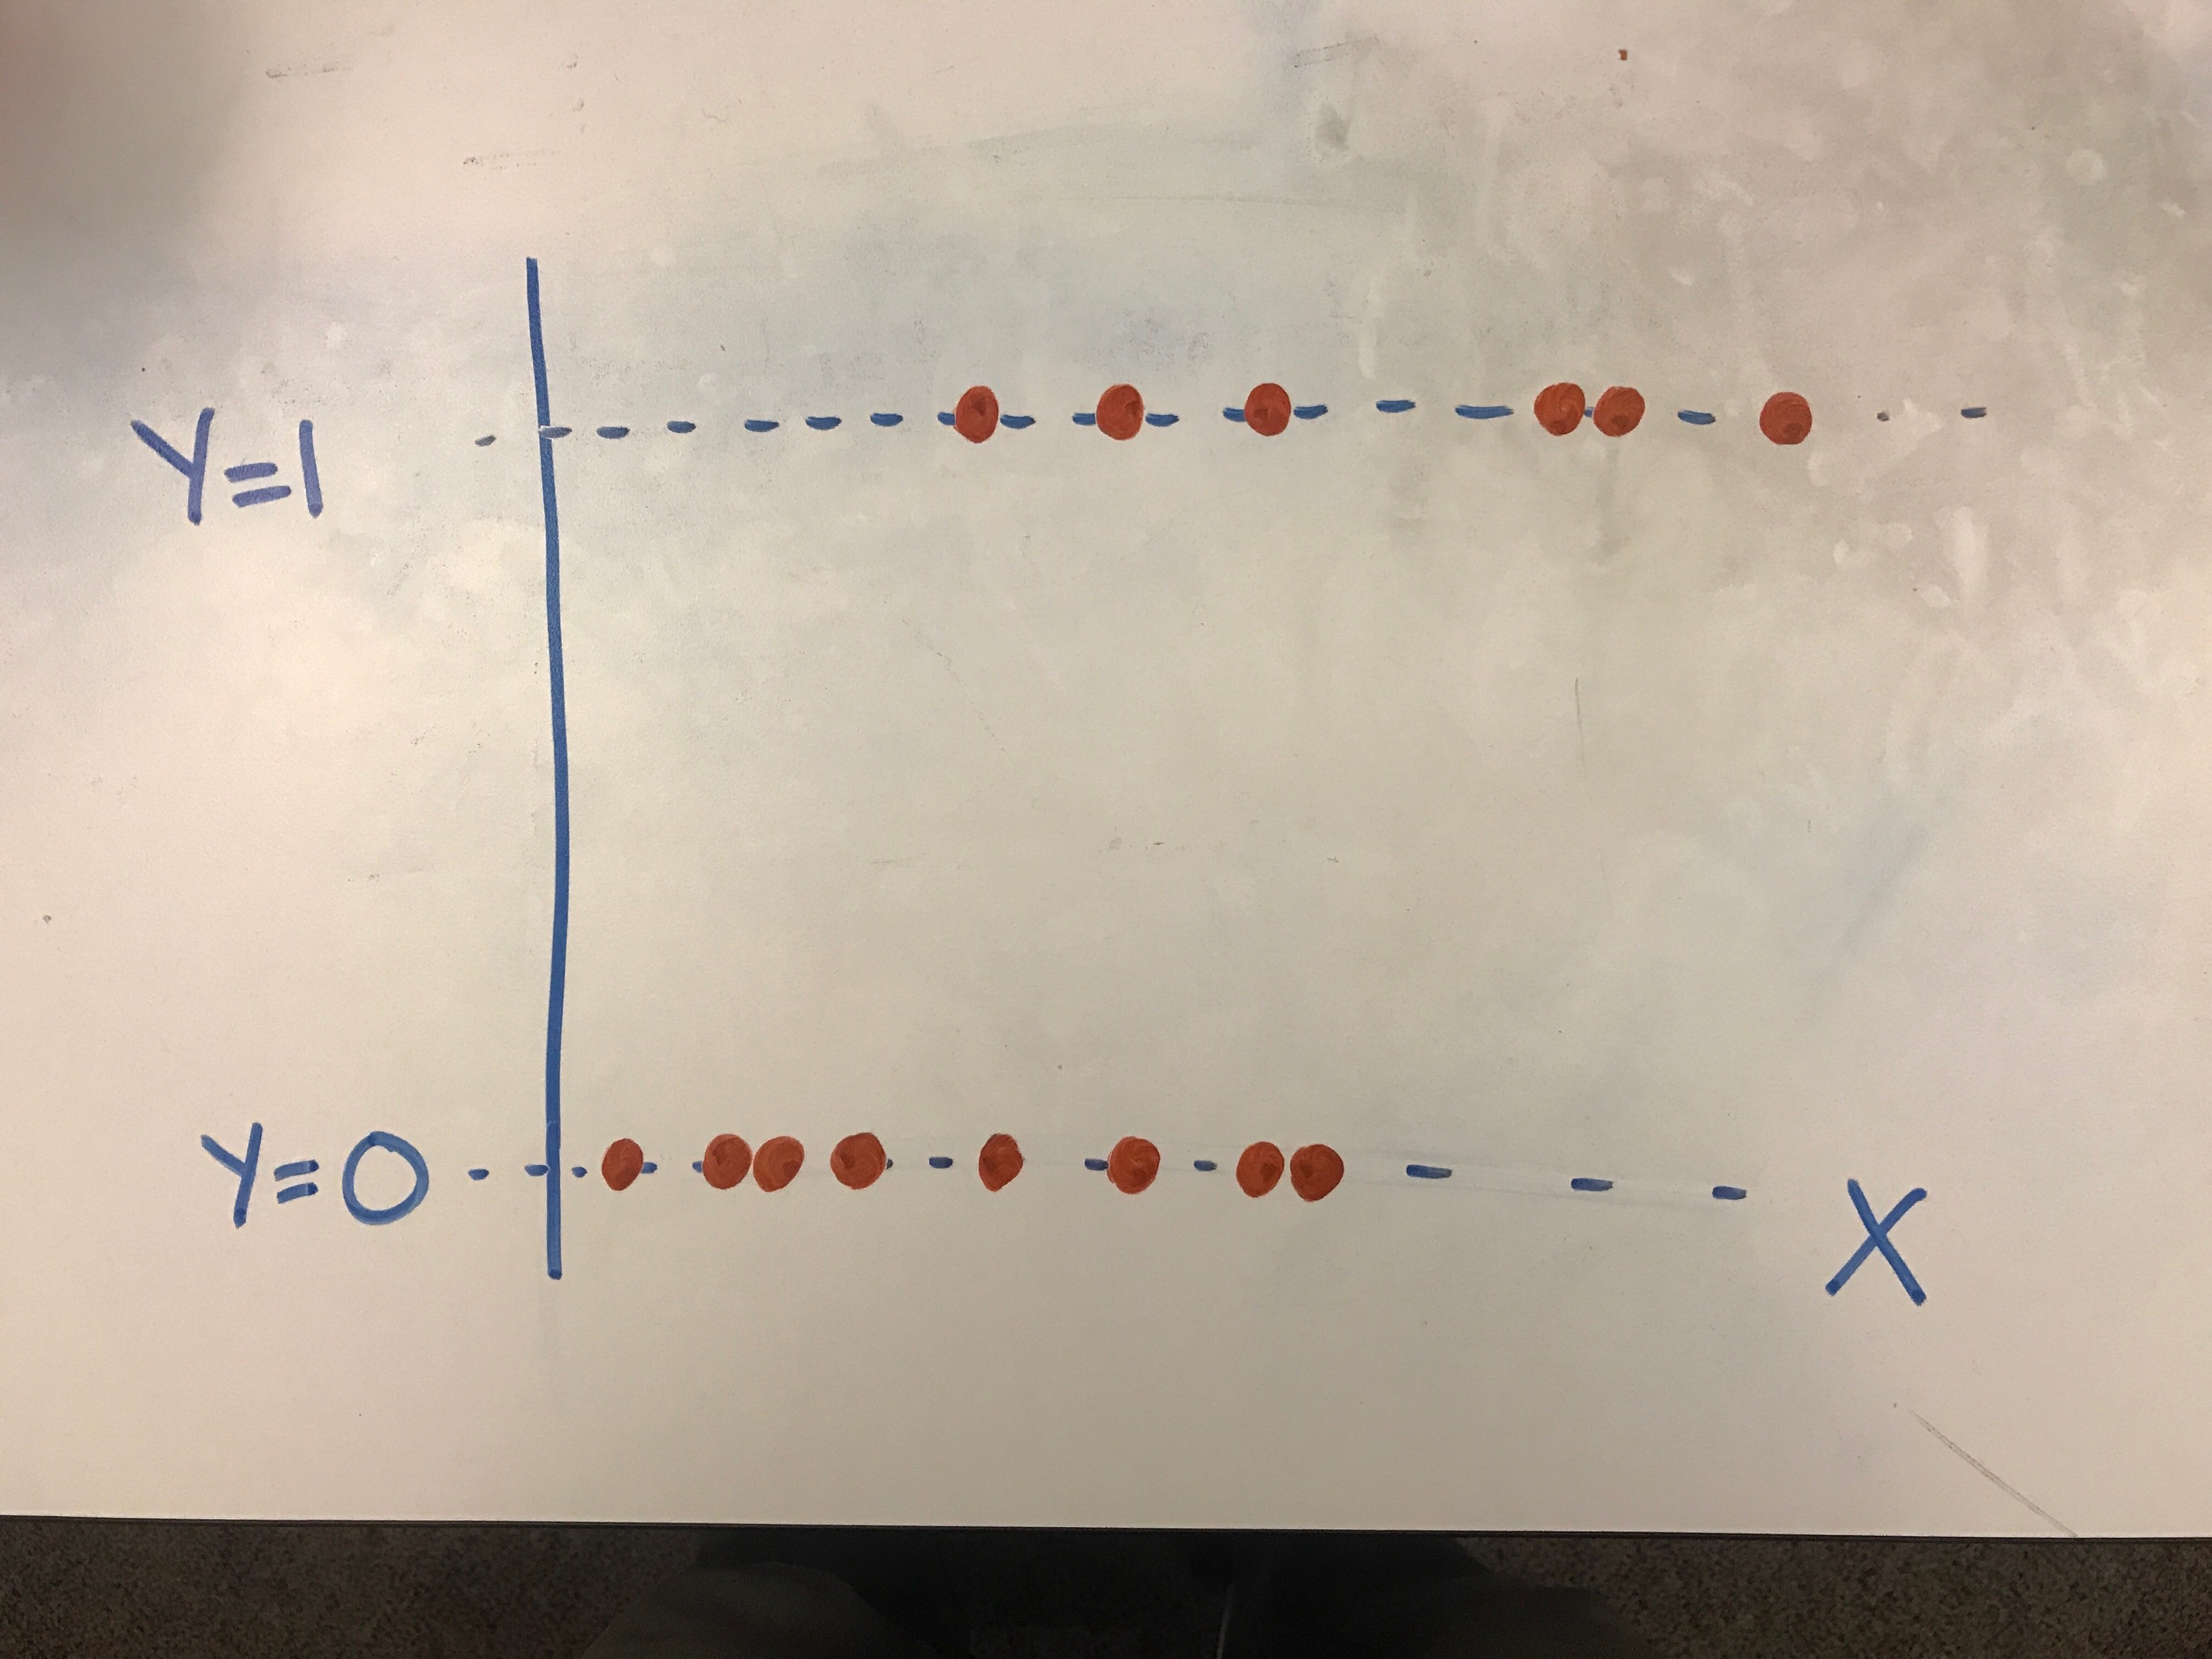 Y=1
Y=0
X